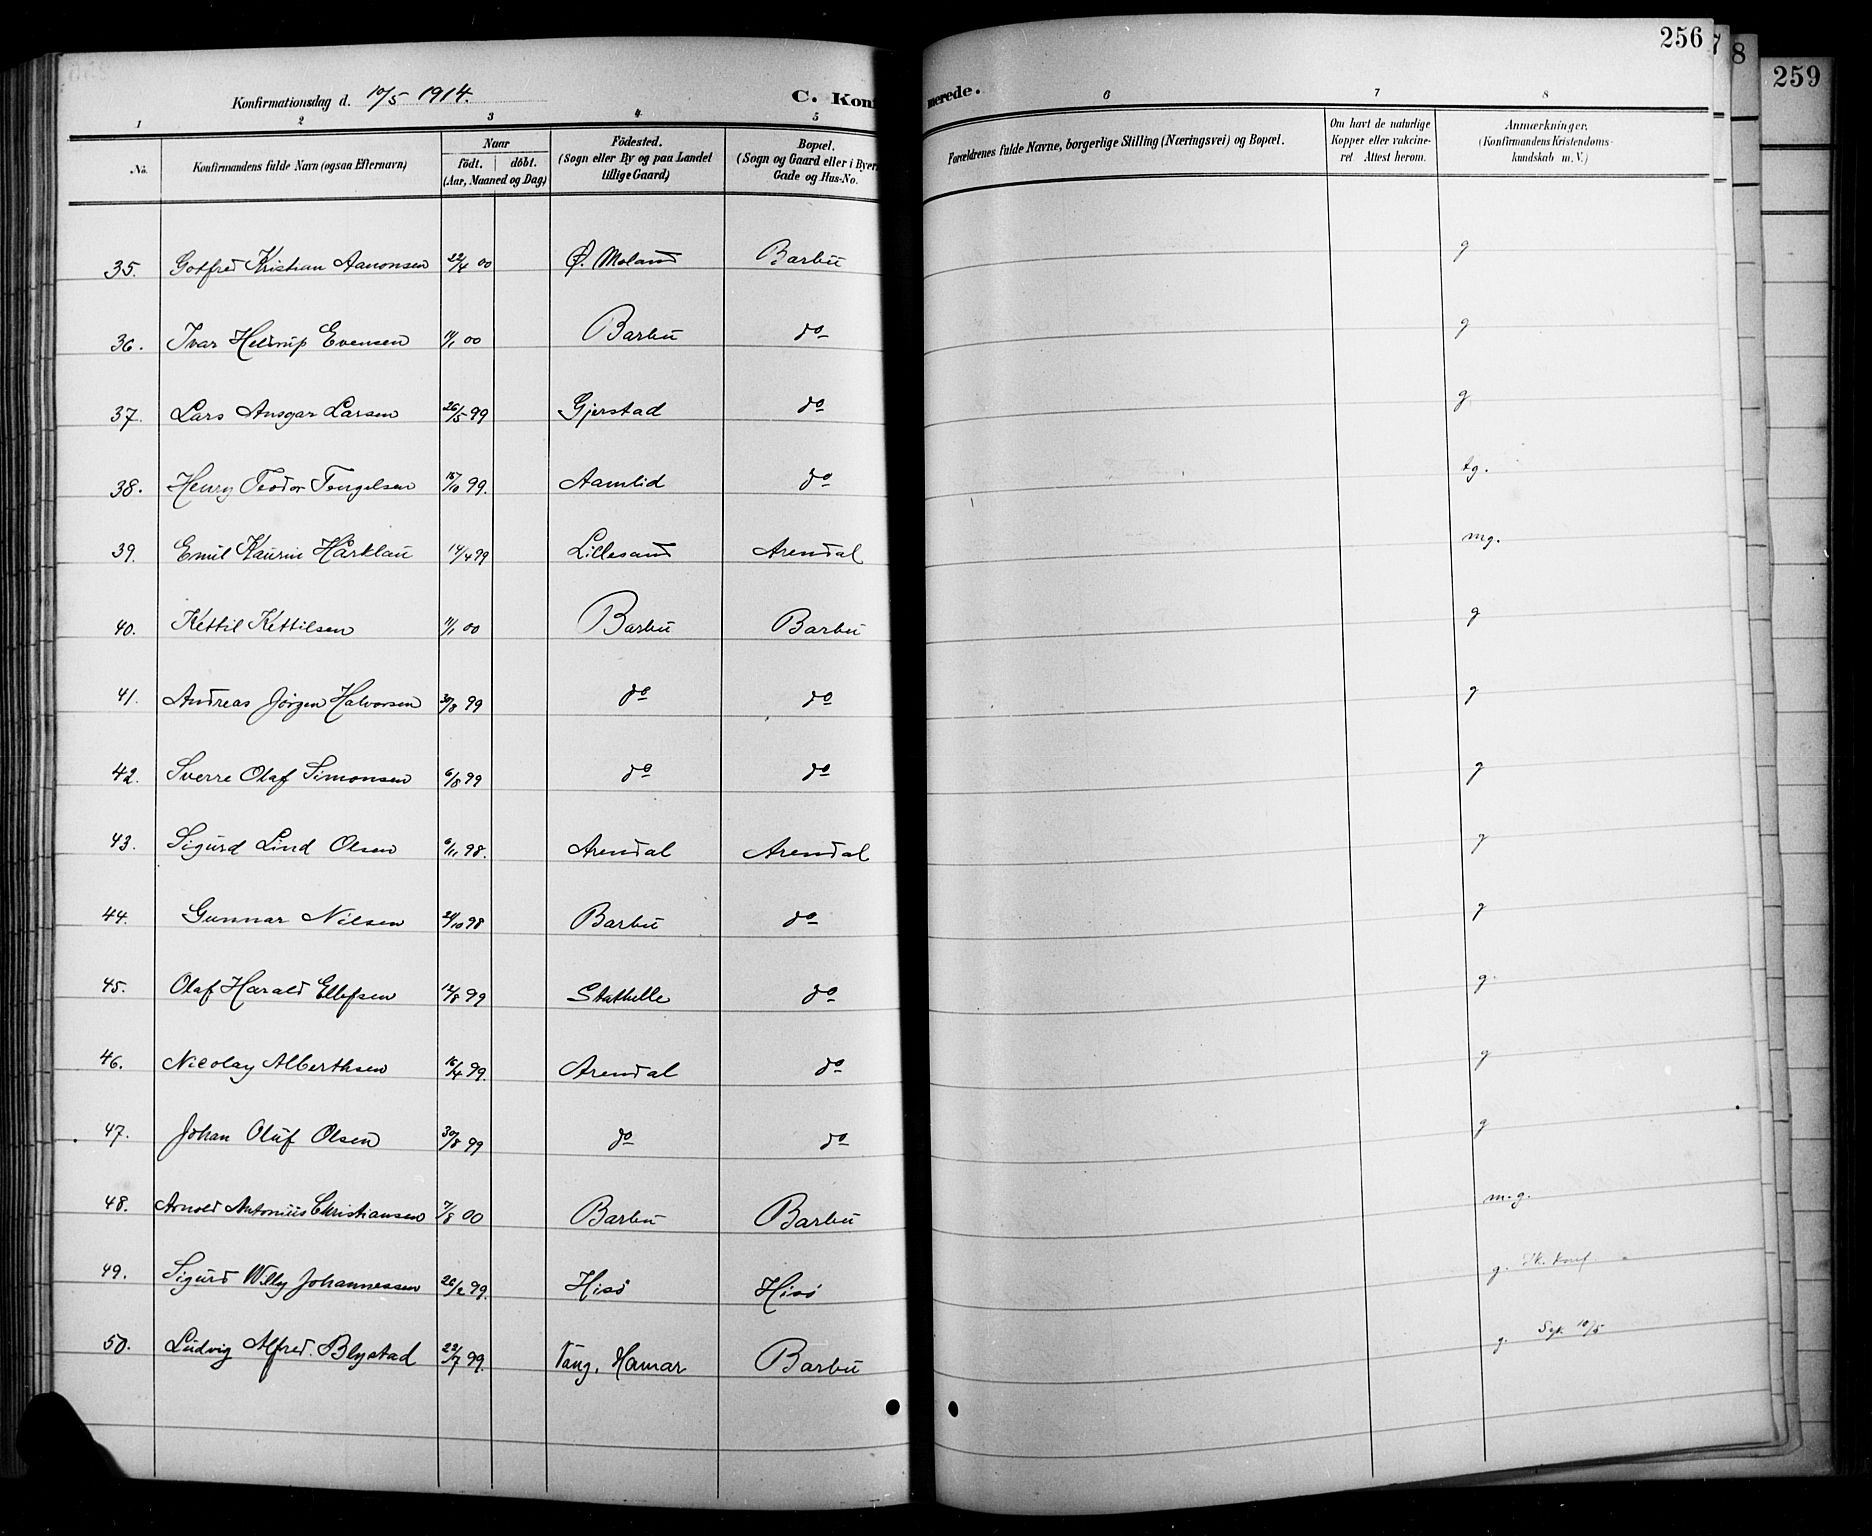 256
259
8
7
Konfirmationsdag d. 10/5 1914. C. Konf merede.
1 2 3 4 5 6 7 8
No. Konfirmandens fulde Navn (ogsaa Efternavn) Naar født. døbt. (Aar, Maaned og Dag) Fødested. (Sogn eller By og paa Landet tillige Gaard) Bopæl. (Sogn og Gaard eller i Byer Gade og Hus-No. Forældrenes fulde Navne, borgerlige Stilling (Næringsvei) og Bopæl. Om havt de naturlige Kopper eller vakcineret. Attest herom. Anmærkninger. (Konfirmandens Kristendomskundskab m. V.)
35. Gotfred Kristian Aanonsen 22/4 00 Ø. Moland Barbu g
36. Ivar Heltrup Evensen 11/1 00 Barbu do g
37. Lars Ansgar Larsen 26/5 99 Gjerstad do g
38. Henry Teodor Tengelsen 15/10 99. Aamlid do tg.
39. Emil Kaurin Harklau 14/4 99 Lillesand Arendal mg.
40. Kettil Kettilsen 11/1 00 Barbu Barbu g
41. Andreas Jørgen Halvorsen 30/8 99 do do g
42. Sverre Olaf Simonsen 6/8 99 do do g
43. Sigurd Lind Olsen 6/11 98. Arendal Arendal g
44. Gunnar Nilsen 21/10 98 Barbu do g
45. Olaf Harald Ellefsen 12/8 99 Stathelle do g.
46. Nicolay Alberthsen 16/4 99. Arendal do g
47. Johan Oluf Olsen 30/8 99 do do g
48. Arnold Antonius Christiansen 7/8 00 Barbu Barbu m.g.
49. Sigurd Willy Johannessen 26/2 99. Hisø Hisø g.
50. Ludvig Alfred. Blystad 22/7 99. Tang, Hamar Barbu g. Syk 10/5